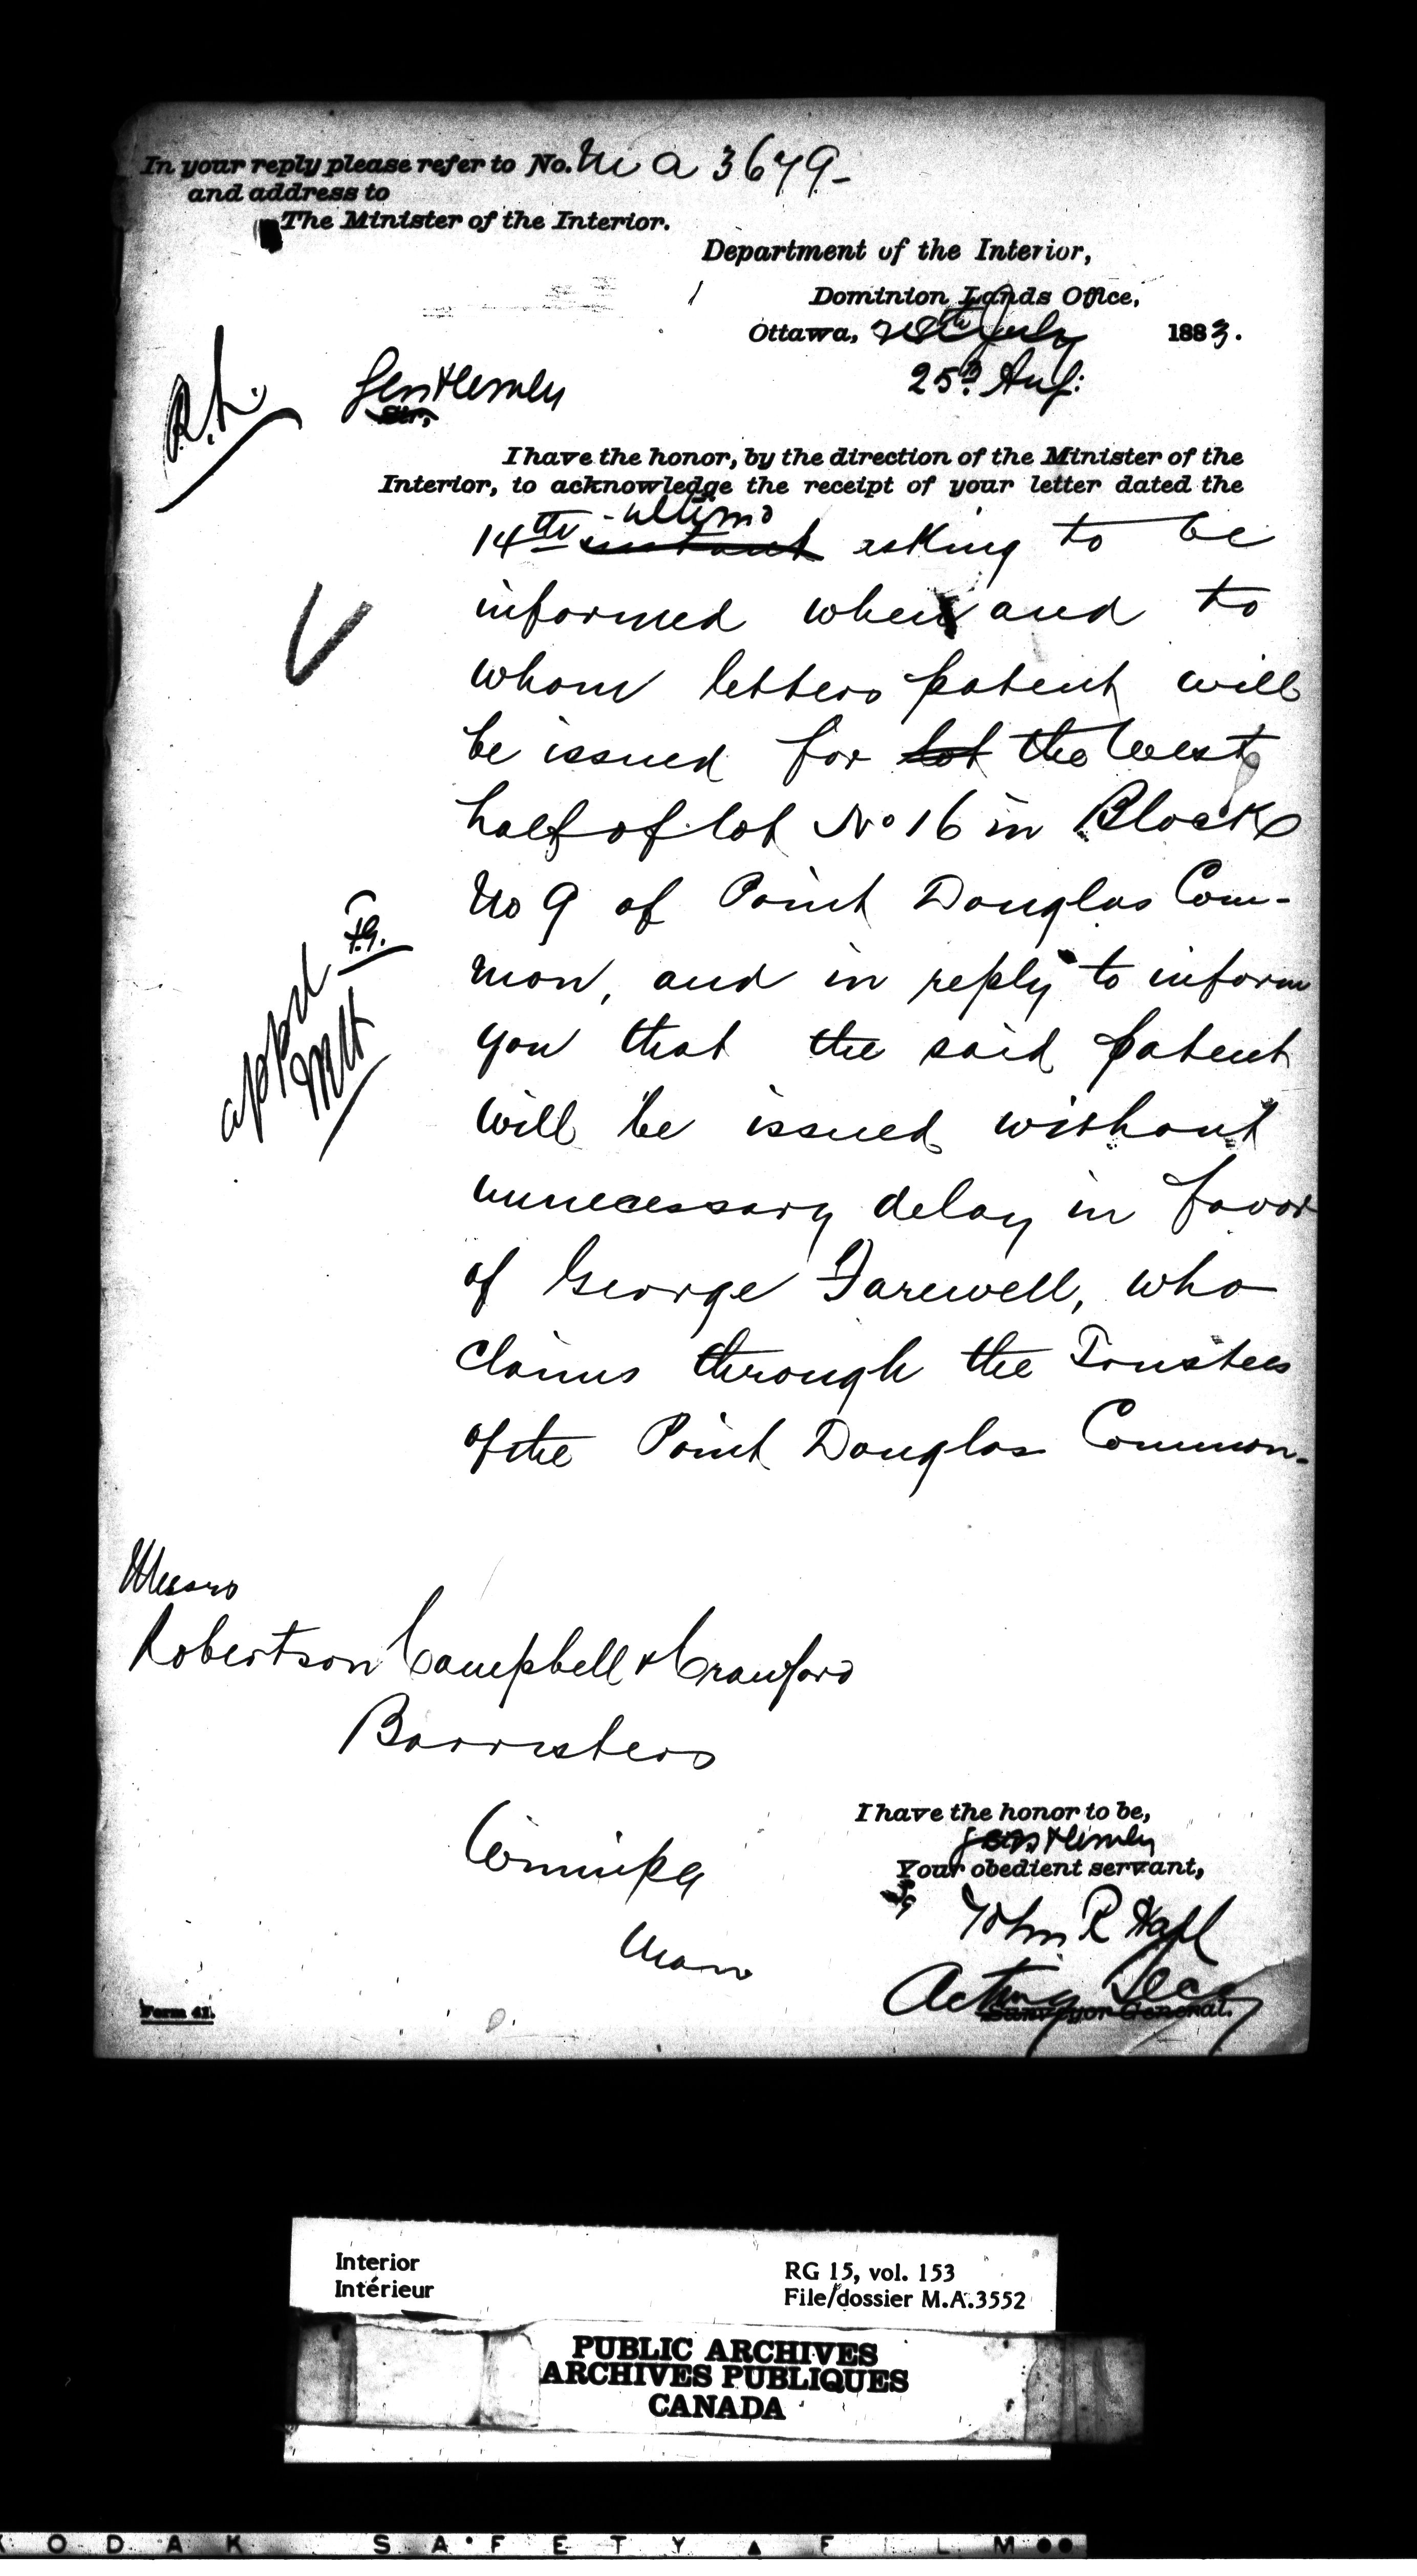 In your reply please refer to No. M a 3679-
and address to
The Minister of the Interior.
Department of the Interior,
Dominion Lands Office,
Ottawa, July 1883.
25th Aug:
R.L.
Gentlemen
Sir,
I have the honor, by the direction of the Minister of the
Interior, to acknowledge the receipt of your letter dated the
ultimo
14th instant asking to be
informed when and to
whom letters patent will
be issued for lot the West
half of lot No 16 in Block
No 9 of Point Douglas Com-
mon, and in reply to inform
you that the said patent
will be issued without
unnecessary delay in favor
of George Farewell, who
claims through the Trustees
of the Point Douglas Common.
appd
Messrs
Robertson Campbell & Crawford
Barristers
Winnipeg
Man
I have the honor to be,
Gentlemen
Your obedient servant,
John R Hall
Acting Secy
Surveyor General.
Form 41.
Interior
Intérieur
RG 15, vol. 153
File/dossier M.A.3552
PUBLIC ARCHIVES
ARCHIVES PUBLIQUES
CANADA
KODAK SAFETY FILM